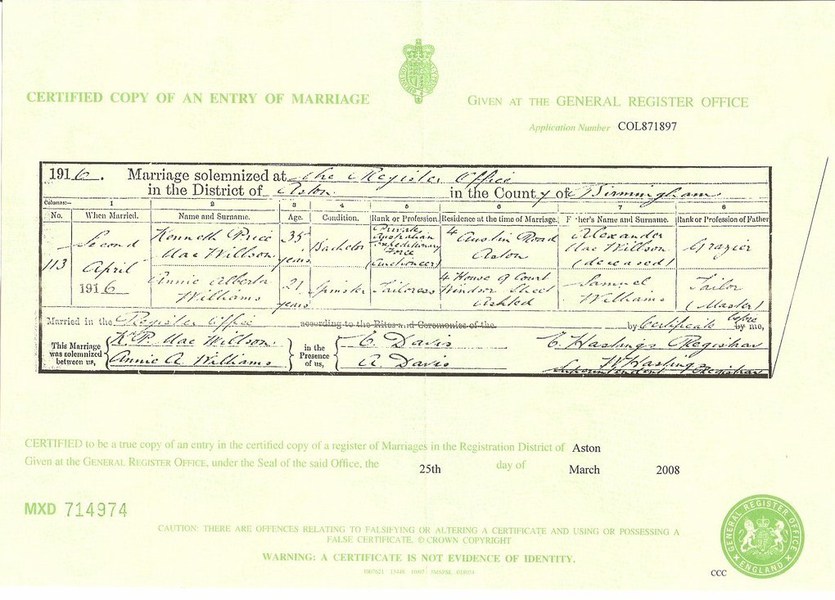 CERTIFIED COPY OF AN ENTRY OF MARRIAGE
GIVEN AT THE GENERAL REGISTER OFFICE
Application Number COL871897
1916. Marriage solemnized at the Register Office
in the District of Aston in the County of Birmingham
Columns:— 1 2 3 4 5 6 7 8
No. When Married. Name and Surname. Age. Condition. Rank or Profession. Residence at the time of Marriage. F 'her's Name and Surname. Rank or Profession of Father
113
Second
April
1916
Kenneth Price
Mae Willson
35
years
Bachelor
Private
Australian
Expeditionary
Force
(Auctioneer)
4 Austin Road
Aston
Alexander
Mae Willson
(deceased)
Grazier
Annie Alberta
Williams
21
years
Spinster
Tailoress
4 House 9 Court
Windsor Street
Ashted
Samuel
Williams
Tailor
(Master)
Married in the Register Office according to the Rites and Ceremonies of the by Certificate by me,
This Marriage
was solemnized
between us,
K. P. Mae Willson
Annie A. Williams
in the
Presence
of us,
E. Davis
A. Davis
E. Hastings Registrar
Superintendent Registrar
CERTIFIED to be a true copy of an entry in the certified copy of a register of Marriages in the Registration District of Aston
Given at the GENERAL REGISTER OFFICE, under the Seal of the said Office, the 25th day of March 2008
MXD 714974
CAUTION: THERE ARE OFFENCES RELATING TO FALSIFYING OR ALTERING A CERTIFICATE AND USING OR POSSESSING A
FALSE CERTIFICATE. © CROWN COPYRIGHT
WARNING: A CERTIFICATE IS NOT EVIDENCE OF IDENTITY.
GENERAL REGISTER OFFICE
ENGLAND
CCC